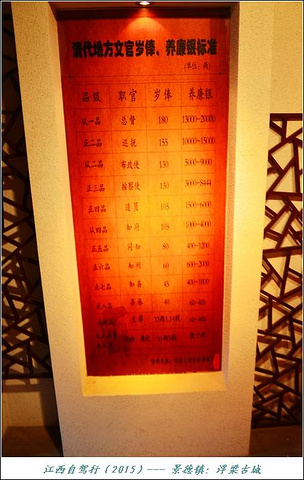 清代地方文官岁俸、养廉银标准
(单位:两)
品级 职官 岁俸 养廉银
从一品 总督 180 13000-20000
正二品 巡抚 155 10000-15000
从二品 布政使 150 5000-9000
正三品 按察使 130 3000-8444
正四品 道员 105 1500-6000
从四品 知府 105 1000-4000
正五品 同知 80 400-1200
正六品 60 600-2000
正七品 知县 45 400-1800
40
主簿
江西自驾行(2015)--- 景德镇:浮梁古城